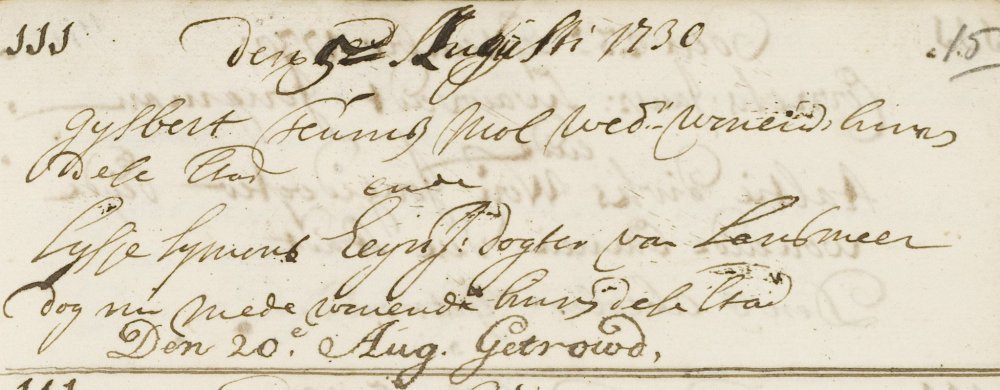 111 den 5en Augusti 1730 15
gysbert teunis Mol Wedr wonend binnen
dese stad
ende
Lysje Symens Eeyrs: dogter van Lansmeer
dog nu mede wonende binn dese stad
Den 20e. Aug. Getrowd,